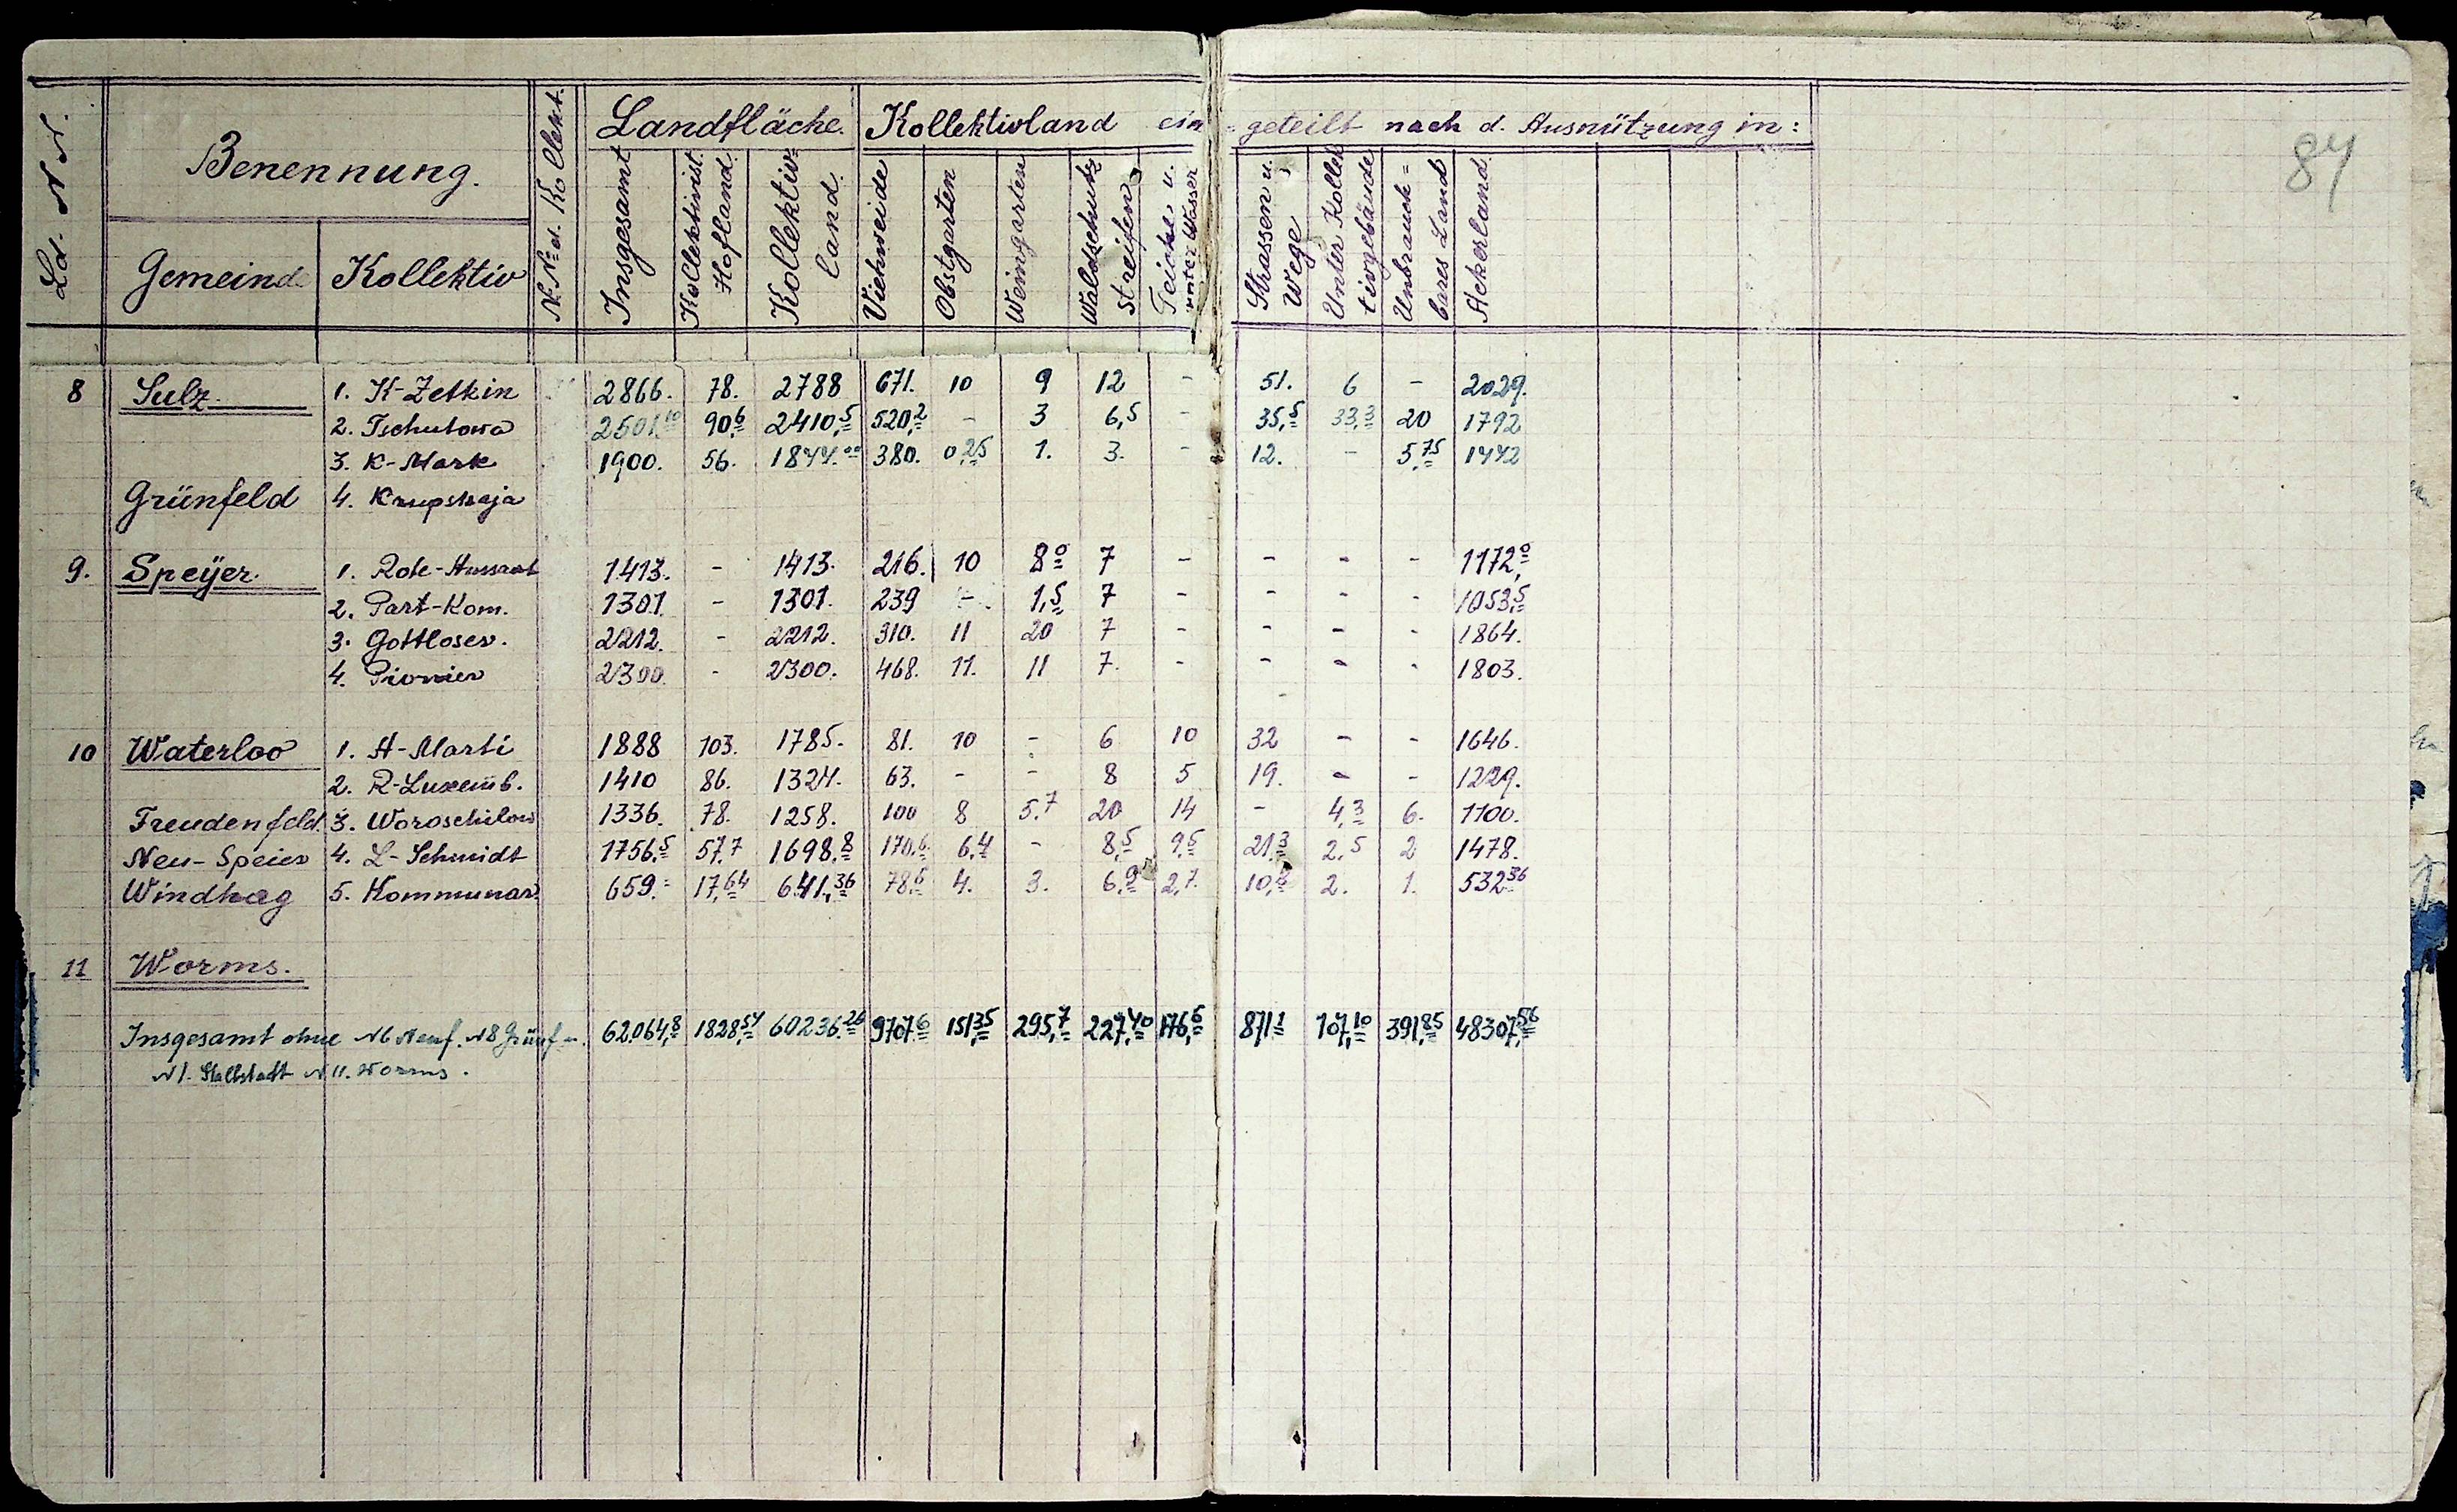 Ld. N N.
Benennung.
N.N. d. Kollekt.
Landfläche.
Kollektivland ein = geteilt nach d. Ausnützung in:
87
Gemeind.
Kollektiv
Insgesamt
Kollektivist. Hofland.
Kollektiv= land.
Viehweide
Obstgarten
Weingarten
Waldschutz streifen
Teiche u. unter Wasser
Strassen u. Wege
Unter Kollek tivgebäude
Unbrauch= bares Land
Ackerland
8 Sulz. 1. K-Zetkin 2866. 78. 2788 671. 10 9 12 - 51. 6 - 2029.
2. Tschutowa 2501,10 90,6 2410,5 520,2 - 3 6,5 - 35,5 33,3 20 1792
3. K-Mark 1900. 56. 1844.00 380. 0,25 1. 3. - 12. - 5,75 1442
Grünfeld 4. Krupskaja
9. Speÿer. 1. Rote-Aussaat 1413. - 1413. 216. 10 8,0 7 - - - - 1172,0
2. Part-Kom. 1301. - 1301. 239 - 1,5 7 - - - - 1053,5
3. Gottloser. 2212. - 2212. 310. 11 20 7 - - - - 1864.
4. Pionier 2300. - 2300. 468. 11. 11 7. - - - - 1803.
10 Waterloo 1. A-Marti 1888 103. 1785. 81. 10 - 6 10 32 - - 1646.
2. R-Luxemb. 1410 86. 1324. 63. - - 8 5 19. - - 1229.
Freudenfeld. 3. Woroschilow 1336. 78. 1258. 100 8 5.7 20 14 - 4,3 6. 1100.
Neu-Speier 4. L-Schmidt 1756,5 57,7 1698,8 170,6 6,4 - 8,5 9,5 21,3 2,5 2 1478.
Windhag 5. Kommunar. 659.= 17,64 641,36 78,5 4. 3. 6,9 2,7. 10, 2. 1. 532,36
11 Worms.
Insgesamt ohne N6 Neuf. N8 Grünf-. 62.064,8 1828,54 60236.26 9707,6 151,35 295,7 227,40 176,5 871,1 107,10 391,85 48307,56
N1. Halbstadt N 11. Worms.